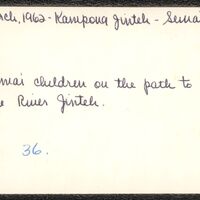 ch, 1962 - Kampong Jinteh - Semai
mai children on the path to
e River Jinteh.
36.